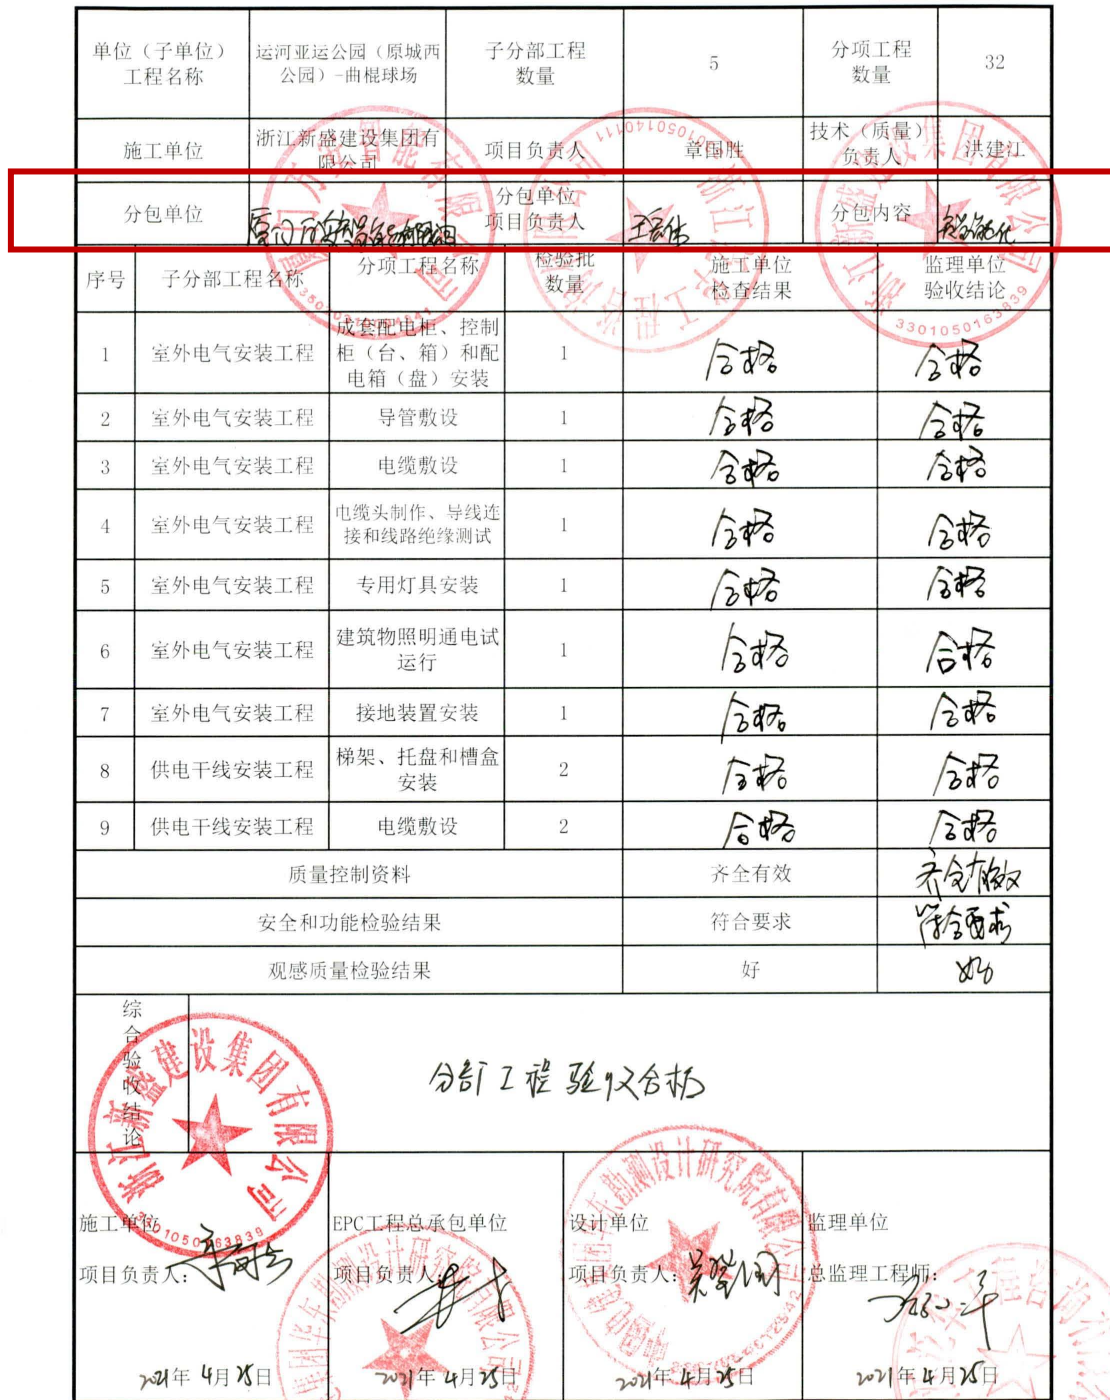 单位（子单位）
工程名称
运河亚运公园（原城西
公园）-曲棍球场
子分部工程
数量
5
分项工程
数量
32
施工单位
浙江新盛建设集团有
限公司
项目负责人
章国胜
技术（质量）
负责人
洪建江
分包单位
分包单位
项目负责人
分包内容
序号
子分部工程名称
分项工程名称
检验批
数量
施工单位
检查结果
监理单位
验收结论
1
室外电气安装工程
成套配电柜、控制
柜（台、箱）和配
电箱（盘）安装
1
合格
合格
2
室外电气安装工程
导管敷设
1
合格
合格
3
室外电气安装工程
电缆敷设
1
合格
合格
4
室外电气安装工程
电缆头制作、导线连
接和线路绝缘测试
1
合格
合格
5
室外电气安装工程
专用灯具安装
1
合格
合格
6
室外电气安装工程
建筑物照明通电试
运行
1
合格
合格
7
室外电气安装工程
接地装置安装
1
合格
合格
8
供电干线安装工程
梯架、托盘和槽盒
安装
2
合格
合格
9
供电干线安装工程
电缆敷设
2
合格
合格
质量控制资料
齐全有效
齐全有效
安全和功能检验结果
符合要求
符合要求
观感质量检验结果
好
好
综合验收结论
分部工程验收合格
浙江新盛建设集团有限公司
施工单位
项目负责人：
2021年4月25日
EPC工程总承包单位
项目负责人：
2021年4月25日
设计单位
项目负责人：
2021年4月25日
监理单位
总监理工程师：
2021年4月25日